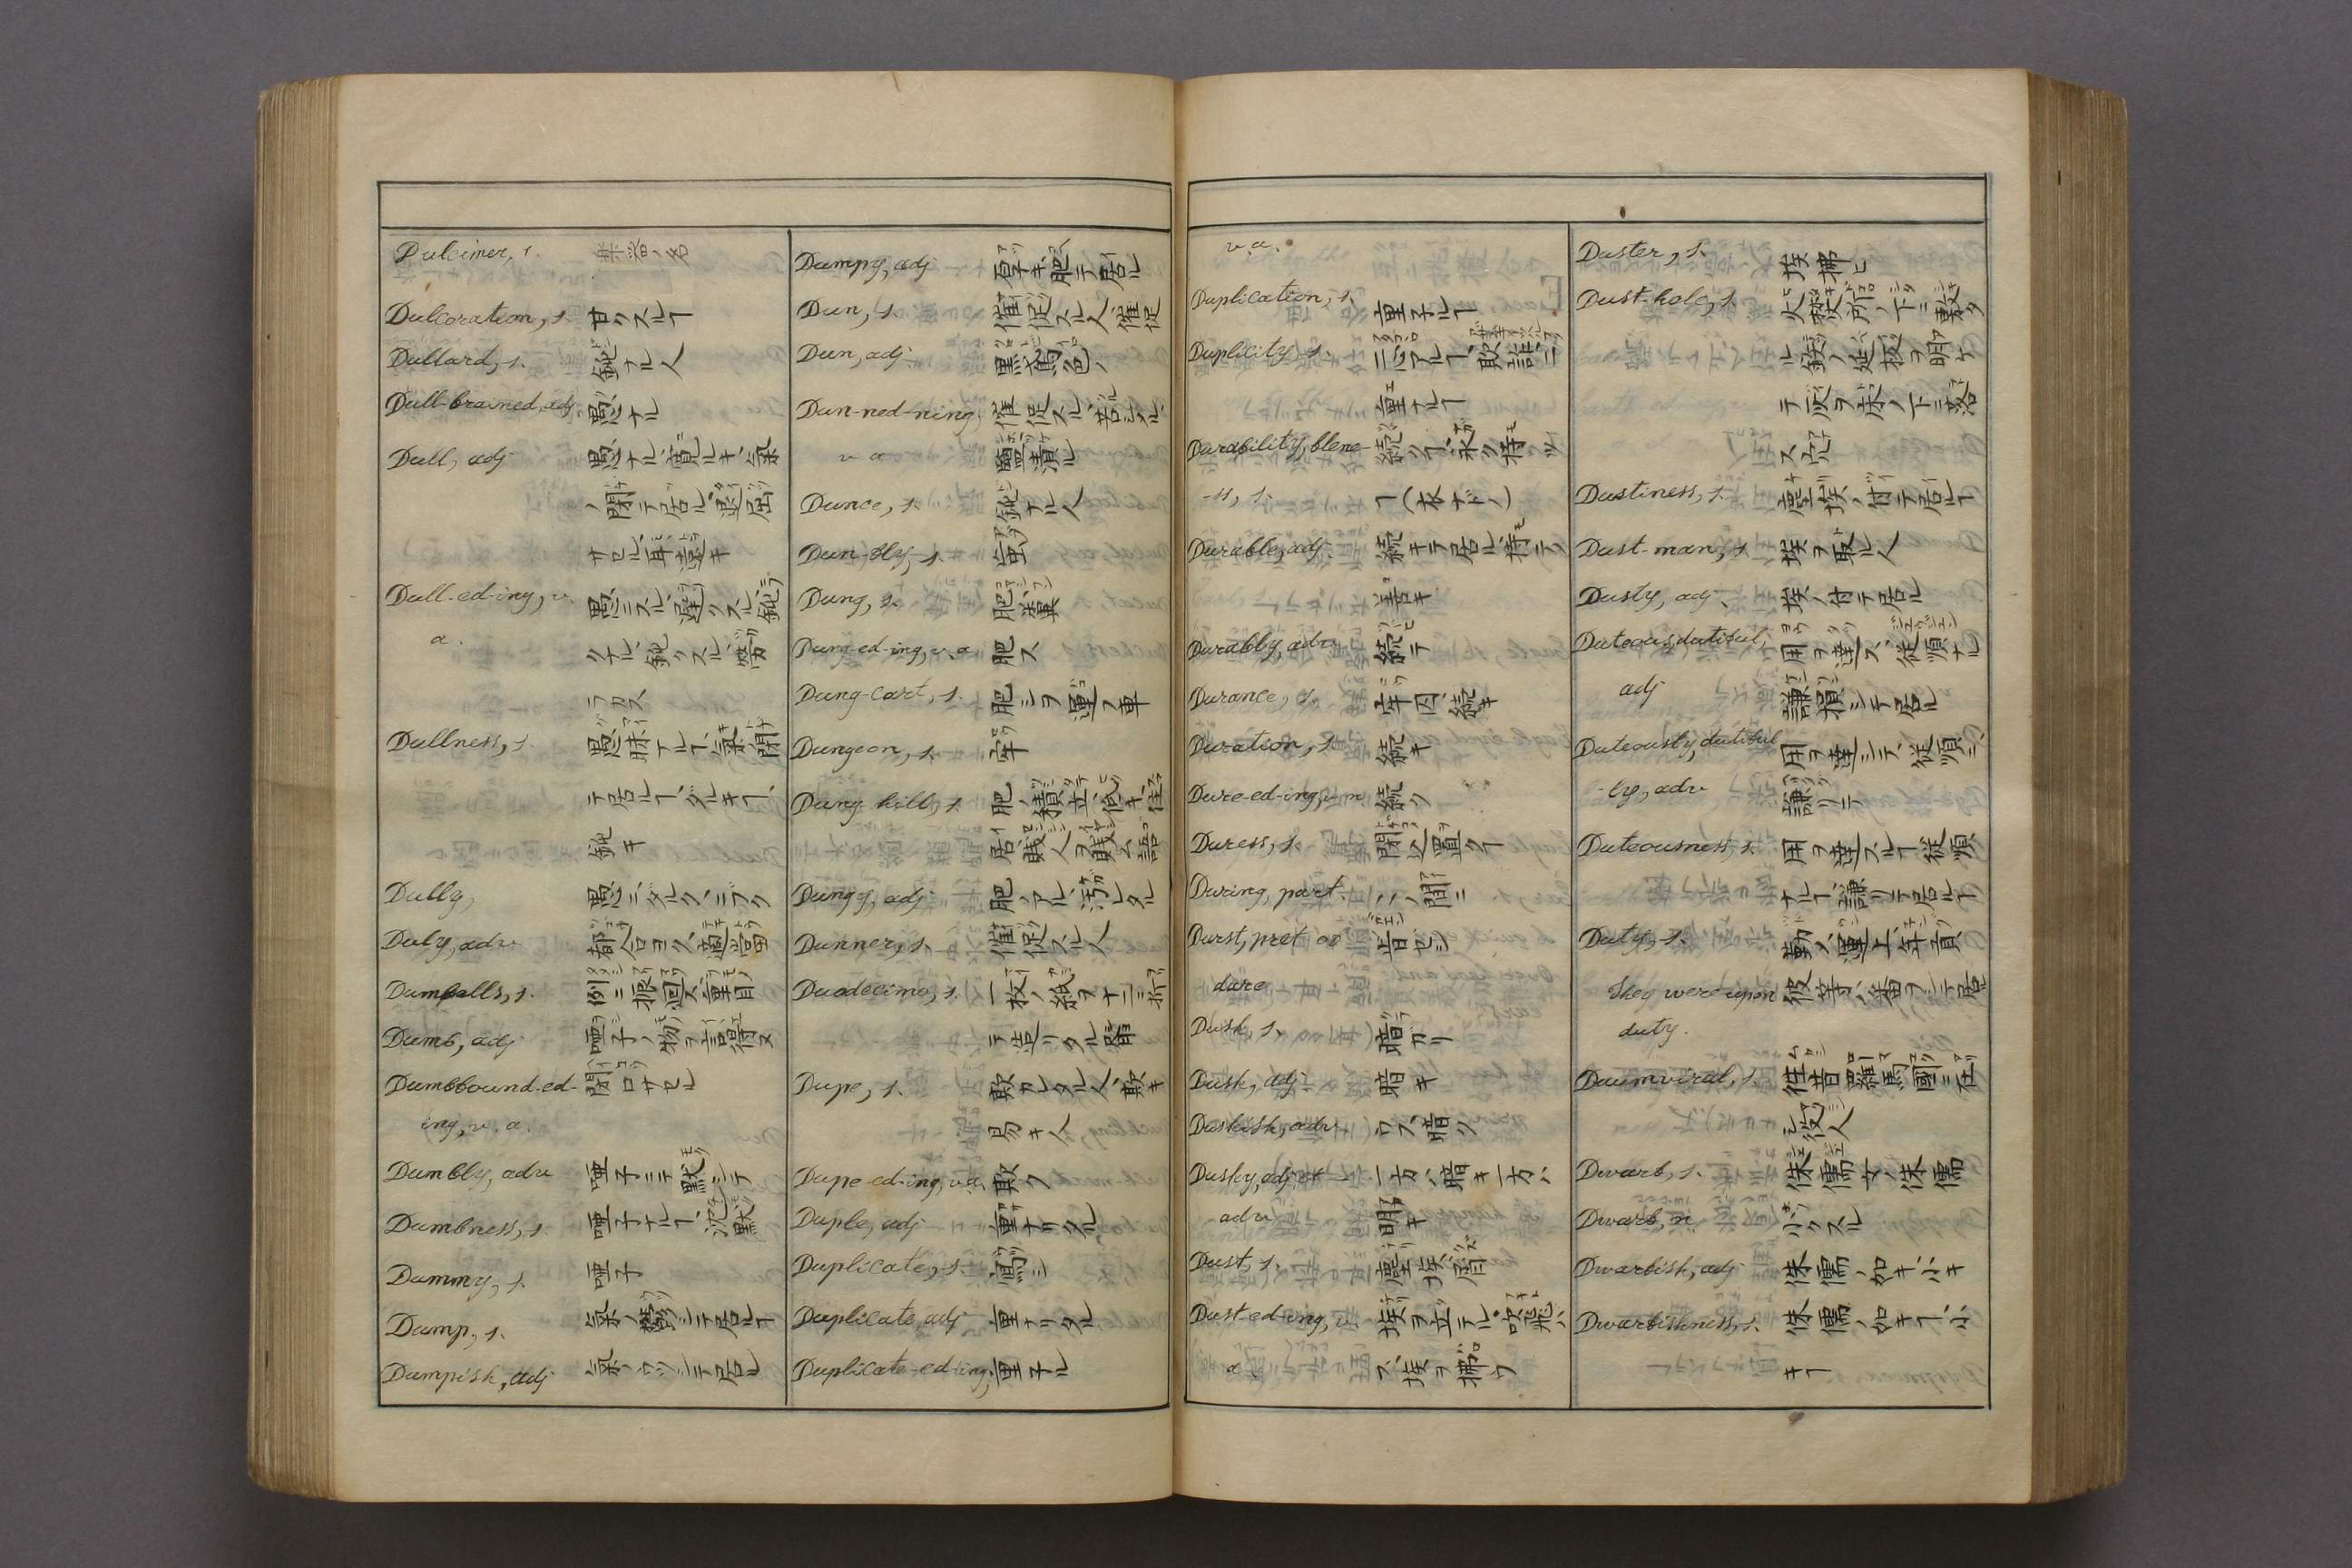 Dulcimer, s. 楽器ノ名
Dulcoration, s. 甘クスルヿ
Dullard, s. 鈍ナル人
Dull-brained, adj 愚ナル
Dull, adj 愚ナル、
閉テ居ル、退屈
サセル、耳遠キ
Dull-ed-ing, v. 愚ニスル、遅クスル、鈍
a. クナル、鈍クスル、
ラカス
Dullness, s. 愚昧ナルヿ、氣閉
テ居ルヿ、ダルキヿ、
鈍キ
Dully, 愚ニ、ダルク、ニブク
Duly, adv 都合ヨク、適當
Dumballs, s.
Dumb, adj 唖子ノ、物ヲ言得ヌ
Dumbfound-ed- 閉口サセル
ing, v. a.
Dumbly, adv 唖子ニテ、黙シテ
Dumbness, s. 唖子ナルヿ、沈黙
Dummy, s. 唖子
Dump, s. 氣ノ鬱シテ居ルヿ
Dumpish, adj 氣ノウッシテ居ル
Dumpy, adj 厚キ、肥テ居ル
Dun, s. 催促スル人、催促
Dun, adj 黒鳶色ノ
Dun-ned-ning, 催促スル、苦シメル、
v a 鹽漬ル
Dunce, s. 鈍ナル人
Dun-fly, s. 虻
Dung, s. 肥、糞
Dung-ed-ing, v. a 肥ス
Dung-cart, s. 肥シヲ運フ車
Dungeon, s. 牢
Dung hill, s. 肥ノ積立、低キ住
居、賤人ヲ賤ム語
Dungy, adj 肥ノアル、汚レタル
Dunner, s. 催促スル人
Duodecimo, s. 一枚ノ紙ヲ十二ニ折
テ造リタル書
Dupe, s. 欺カレタル人、欺キ
易キ人
Dupe-ed-ing, v a 欺ク
Duple, adj 重ナリタル
Duplicate, s. 寫シ
Duplicate adj 重ナリタル
Duplicate-ed-ing, 重子ル
v. a.
Duplication, s. 重子ルヿ
Duplility s. 二心アルヿ、欺詐、二
重ナルヿ
Durability, blene- 続クヿ、永ク持ツ
-ss, s. ヿ(衣ナドノ)
Durable, adj 続キテ居ル、持テ
善キ
Durably, adv 続テ
Durance, s. 牢囚、続キ
Duration, s. 続キ
Dure-ed-ing, v n 続ク
Duress, s. 閉込置クヿ
During, part. 間ニ
Durst, pret of 肯セシ
dare
Dusk, s. 暗ガリ
Dusk, adj 暗キ
Duskish, adv ウス暗ク
Dusky, adj et 一方ハ暗キ一方ハ
adv 明キ
Dust, s. 塵埃、屑
Dust-ed-ing, v. 埃ヲ立テル、吹飛ハ
a. ス、埃ヲ拂ウ
Duster, s. 埃拂ヒ
Dust-hole, s. 火燵所ノ下ニ敷タ
ル鉄ノ延板ヲ明ケ
テ灰ヲ床ノ下ニ落
ス穴
Dustiness, s. 塵埃ノ付テ居ルヿ
Dust-man, s. 埃ヲ取ル人
Dusty, adj 埃ノ付テ居ル
Duteous, dutiful, 用ヲ達ス、従順ナル
adj 謙損シテ居ル
Duteously, dutiful 用ヲ達シテ、従順ニ、
-ly, adv 謙リテ
Duteousness, s. 用ヲ達スルヿ従順
ナルヿ、謙リテ居ルヿ
Duty, s. 勤メ、運上、年貢
They were upon 彼等ハ番ヲシテ居
duty.
Duumviral, s. 往昔羅馬國ニ在
シ役人
Dwarf, s. 侏儒、女ノ侏儒
Dwarf, n 小クスル
Dwarfish, adj 侏儒ノ如キ、小キ
Dwarfishness, s. 侏儒ノ如キヿ、小
キヿ